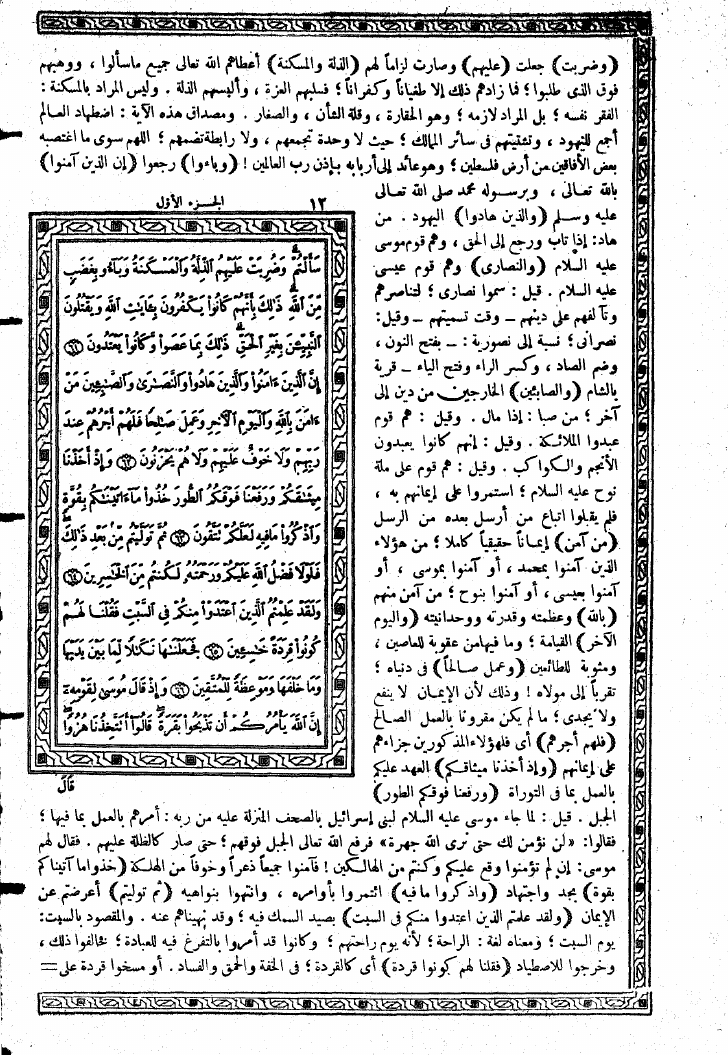 (وضربت) جعلت (عليهم) وصارت لزاماً لهم (الذلة والمسكنة) أعطاهم الله تعالى جميع ماسألوا ، ووهبهم
فوق الذى طلبوا ؛ فما زادهم ذلك إلا طغياناً وكفراناً ؛ فسلبهم العزة ، وألبسهم الذلة . وليس المراد بالمسكنة :
الفقر نفسه ؛ بل المراد لازمه ؛ وهو الحقارة ، وقلة الشأن ، والصغار . ومصداق هذه الآية : اضطهاد العالم
أجمع لليهود ، وتشتيتهم فى سائر الممالك ؛ حيث لا وحدة تجمعهم ، ولا رابطة تضمهم ؛ اللهم سوى ما اغتصبه
بعض الأفاقين من أرض فلسطين ؛ وهو عائد إلى أربابه بإذن رب العالمين ! (وباءوا) رجعوا (إن الذين آمنوا)
بالله تعالى ، وبرسوله محمد صلى الله تعالى
عليه وسلم (والذين هادوا) اليهود . من
هاد : إذا تاب ورجع إلى الحق ، وهم قوم موسى
عليه السلام (والنصارى) وهم قوم عيسى
عليه السلام . قيل : سموا نصارى ؛ لتناصرهم
وتآلفهم على دينهم – وقت تسميتهم – وقيل :
نصرانى ؛ نسبة إلى نصورية : – بفتح النون ،
وضم الصاد ، وكسر الراء وفتح الياء – قرية
بالشام (والصابئين) الخارجين من دين إلى
آخر ؛ من صبا : إذا مال . وقيل : هم قوم
عبدوا الملائكة . وقيل : إنهم كانوا يعبدون
الأنجم والكواكب . وقيل : هم قوم على ملة
نوح عليه السلام ؛ استمروا على إيمانهم به ،
فلم يقبلوا اتباع من أرسل بعده من الرسل
(من آمن) إيماناً حقيقياً كاملا ؛ من هؤلاء
الذين آمنوا بمحمد ، أو آمنوا بموسى ، أو
آمنوا بعيسى ، أو آمنوا بنوح ؛ من آمن منهم
(بالله) وعظمته وقدرته ووحدانيته (واليوم
الآخر) القيامة ؛ وما فيها من عقوبة للعاصين ،
ومثوبة للطائعين (وعمل صالحاً) فى دنياه ؛
تقرباً إلى مولاه ! وذلك لأن الإيمان لا ينفع
ولا يجدى ؛ ما لم يكن مقرونا بالعمل الصالح
(فلهم أجرهم) أى فلهؤلاء المذكورين جزاءهم
على إيمانهم (وإذ أخذنا ميثاقكم) العهد عليكم
بالعمل بما فى التوراة (ورفعنا فوقكم الطور)
١٢ الجزء الأول
سَأَلْتُمْ وَضُرِبَتْ عَلَيْهِمُ ٱلذِّلَّةُ وَٱلْمَسْكَنَةُ وَبَآءُو بِغَضَبٍ
مِّنَ ٱللَّهِ ذَٰلِكَ بِأَنَّهُمْ كَانُوا۟ يَكْفُرُونَ بِـَٔايَٰتِ ٱللَّهِ وَيَقْتُلُونَ
ٱلنَّبِيِّـۧنَ بِغَيْرِ ٱلْحَقِّ ذَٰلِكَ بِمَا عَصَوا۟ وَّكَانُوا۟ يَعْتَدُونَ ٦١
إِنَّ ٱلَّذِينَ ءَامَنُوا۟ وَٱلَّذِينَ هَادُوا۟ وَٱلنَّصَٰرَىٰ وَٱلصَّٰبِـِٔينَ مَنْ
ءَامَنَ بِٱللَّهِ وَٱلْيَوْمِ ٱلْءَاخِرِ وَعَمِلَ صَٰلِحًا فَلَهُمْ أَجْرُهُمْ عِندَ
رَبِّهِمْ وَلَا خَوْفٌ عَلَيْهِمْ وَلَا هُمْ يَحْزَنُونَ ٦٢ وَإِذْ أَخَذْنَا
مِيثَٰقَكُمْ وَرَفَعْنَا فَوْقَكُمُ ٱلطُّورَ خُذُوا۟ مَآ ءَاتَيْنَٰكُم بِقُوَّةٍ
وَٱذْكُرُوا۟ مَا فِيهِ لَعَلَّكُمْ تَتَّقُونَ ٦٣ ثُمَّ تَوَلَّيْتُم مِّنۢ بَعْدِ ذَٰلِكَ
فَلَوْلَا فَضْلُ ٱللَّهِ عَلَيْكُمْ وَرَحْمَتُهُۥ لَكُنتُم مِّنَ ٱلْخَٰسِرِينَ ٦٤
وَلَقَدْ عَلِمْتُمُ ٱلَّذِينَ ٱعْتَدَوْا۟ مِنكُمْ فِى ٱلسَّبْتِ فَقُلْنَا لَهُمْ
كُونُوا۟ قِرَدَةً خَٰسِـِٔينَ ٦٥ فَجَعَلْنَٰهَا نَكَٰلًا لِّمَا بَيْنَ يَدَيْهَا
وَمَا خَلْفَهَا وَمَوْعِظَةً لِّلْمُتَّقِينَ ٦٦ وَإِذْ قَالَ مُوسَىٰ لِقَوْمِهِۦٓ
إِنَّ ٱللَّهَ يَأْمُرُكُمْ أَن تَذْبَحُوا۟ بَقَرَةً قَالُوٓا۟ أَتَتَّخِذُنَا هُزُوًا
قَالَ
الجبل . قيل : لما جاء موسى عليه السلام لبنى إسرائيل بالصحف المنزلة عليه من ربه : أمرهم بالعمل بما فيها ؛
فقالوا : «لن نؤمن لك حتى نرى الله جهرة» فرفع الله تعالى الجبل فوقهم ؛ حتى صار كالظلة عليهم . فقال لهم
موسى : إن لم تؤمنوا وقع عليكم وكنتم من الهالكين ! فآمنوا جميعاً ذعراً وخوفاً من الهلكة (خذوا ما آتيناكم
بقوة) بجد واجتهاد (واذكروا ما فيه) ائتمروا بأوامره ، وانتهوا بنواهيه (ثم توليتم) أعرضتم عن
الإيمان (ولقد علمتم الذين اعتدوا منكم فى السبت) بصيد السمك فيه ؛ وقد نهيناهم عنه . والمقصود بالسبت :
يوم السبت ؛ ومعناه لغة : الراحة ؛ لأنه يوم راحتهم ؛ وكانوا قد أمروا بالتفرغ فيه للعبادة ؛ فخالفوا ذلك ،
وخرجوا للاصطياد (فقلنا لهم كونوا قردة) أى كالقردة ؛ فى الخفة والحمق والفساد . أو مسخوا قردة على =